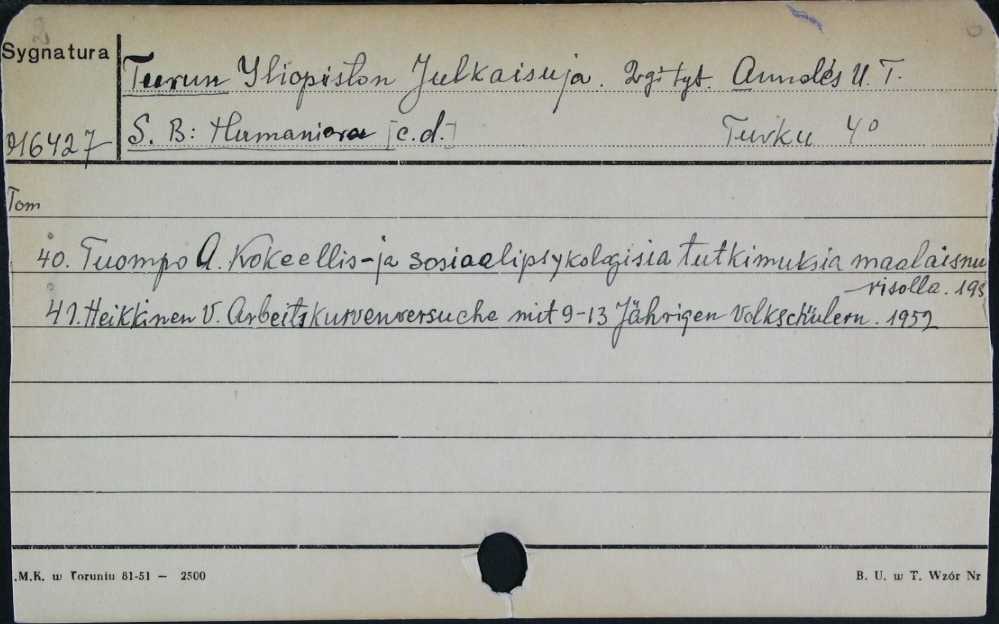 Sygnatura
Turun Yliopiston Julkaisuja. 2gi tyt. Annalés U. T.
016427 S. B: Humaniora [c.d.] Turku 4°
Tom
40. Tuompo A. Kokeellis-ja sosiaalipsykologisia tutkimuksia maalaisnu
risolla. 195
41. Heikkinen V. Arbeitskurvenversuche mit 9-13 Jährigen Volkschülern. 1952
.M.K. w Toruniu 81-51 — 2500
B. U. w T. Wzór Nr